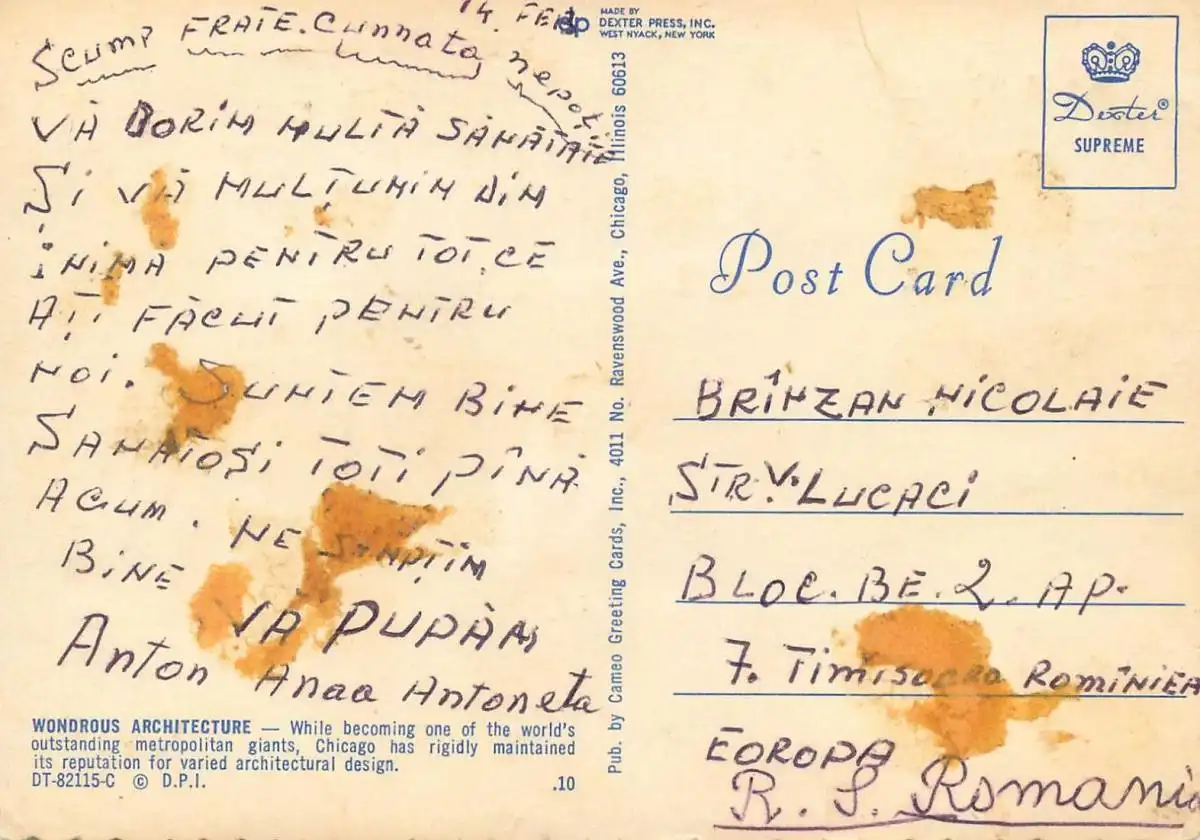 14. FEB
Scump FRATE. Cunnata nepoți
VĂ DORIM MULTĂ SĂNĂTATE
ȘI VĂ MULȚUMIM DIM
INIMA PENTRU TOT.CE
AȚI FĂCUT PENTRU
NOI. SUNTEM BINE
SANATOȘI TOTI PÎNĂ
ACUM. NE SIMPȚIM
BINE VĂ PUPĂM
Anton Anaa Antoneta
WONDROUS ARCHITECTURE — While becoming one of the world's
outstanding metropolitan giants, Chicago has rigidly maintained
its reputation for varied architectural design.
DT-82115-C © D.P.I. .10
Pub. by Cameo Greeting Cards, Inc., 4011 No. Ravenswood Ave., Chicago, Illinois 60613
dp MADE BY
DEXTER PRESS, INC.
WEST NYACK, NEW YORK
Dexter®
SUPREME
Post Card
BRÎNZAN NICOLAIE
STR. V. LUCACI
BLOC. BE. 2. AP.
7. TIMISOCRA ROMÎNIEA
EOROPA
R. S. Romania